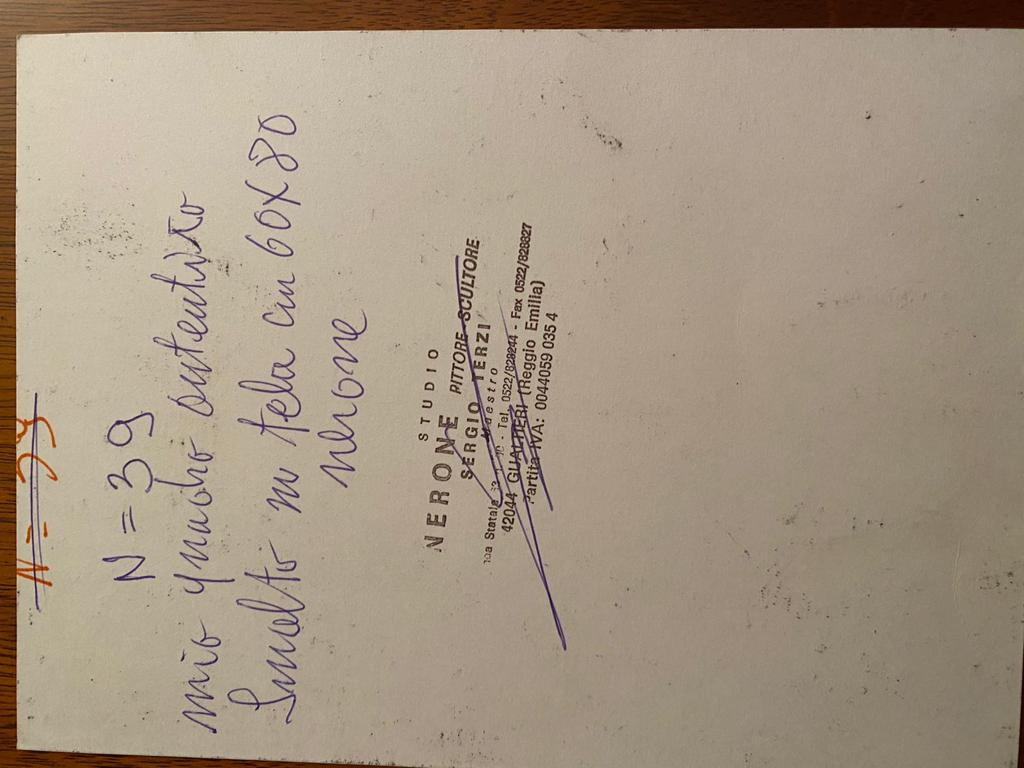 N = 39
N = 39
mio quadro autentico
Smalto su tela cm 60x80
nerone
STUDIO
NERONE PITTORE-SCULTORE
SERGIO TERZI
Maestro
Statale 63 - Tel. 0522/828244 - Fax 0522/828827
42044 GUALTIERI (Reggio Emilia)
Partita IVA: 0044059 035 4